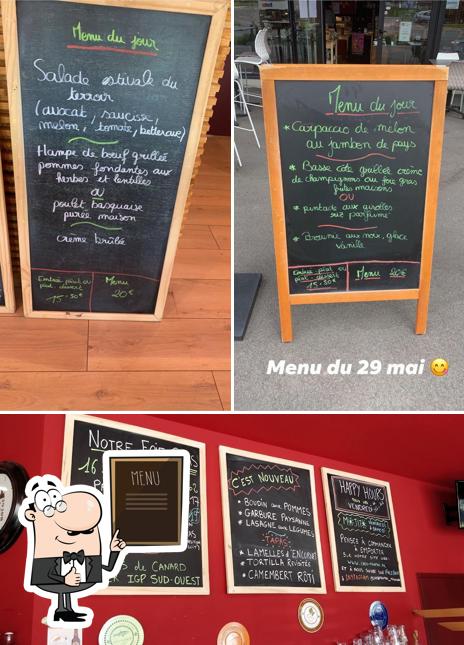 Menu du jour
Salade estivale du
terroir
(avocat, saucisse,
melon, tomate, betterave)
Hampe de bœuf grillée
pommes fondantes aux
herbes et lentilles
ou
poulet basquaise
purée maison
creme brûlée
Entrée plat ou
plat dessert
15.50€
Menu
20€
Menu du jour
* Carpaccio de melon
au jambon de pays
* Basse côte grillée crème
de champignons ou foie gras
frites maisons
OU
* pintade aux girolles
riz parfumé
* Brownie aux noix, glace
vanille
Entrée plat ou
plat-dessert
15.50€
Menu 20€
Menu du 29 mai 😋
NOTRE
16
MENU
DE CANARD
IGP SUD-OUEST
C'EST NOUVEAU
* BOUDIN AUX POMMES
* GARBURE PAYSANNE
* LASAGNE AUX LÉGUMES
TAPAS
* LAMELLES D'ENCORNET
* TORTILLA REVISITÉE
* CAMEMBERT RÔTI
HAPPY HOURS
VENDREDI
PENSEZ À COMMANDER
À EMPORTER
SUR NOTRE SITE WEB
ET À NOUS SUIVRE SUR
INSTAGRAM